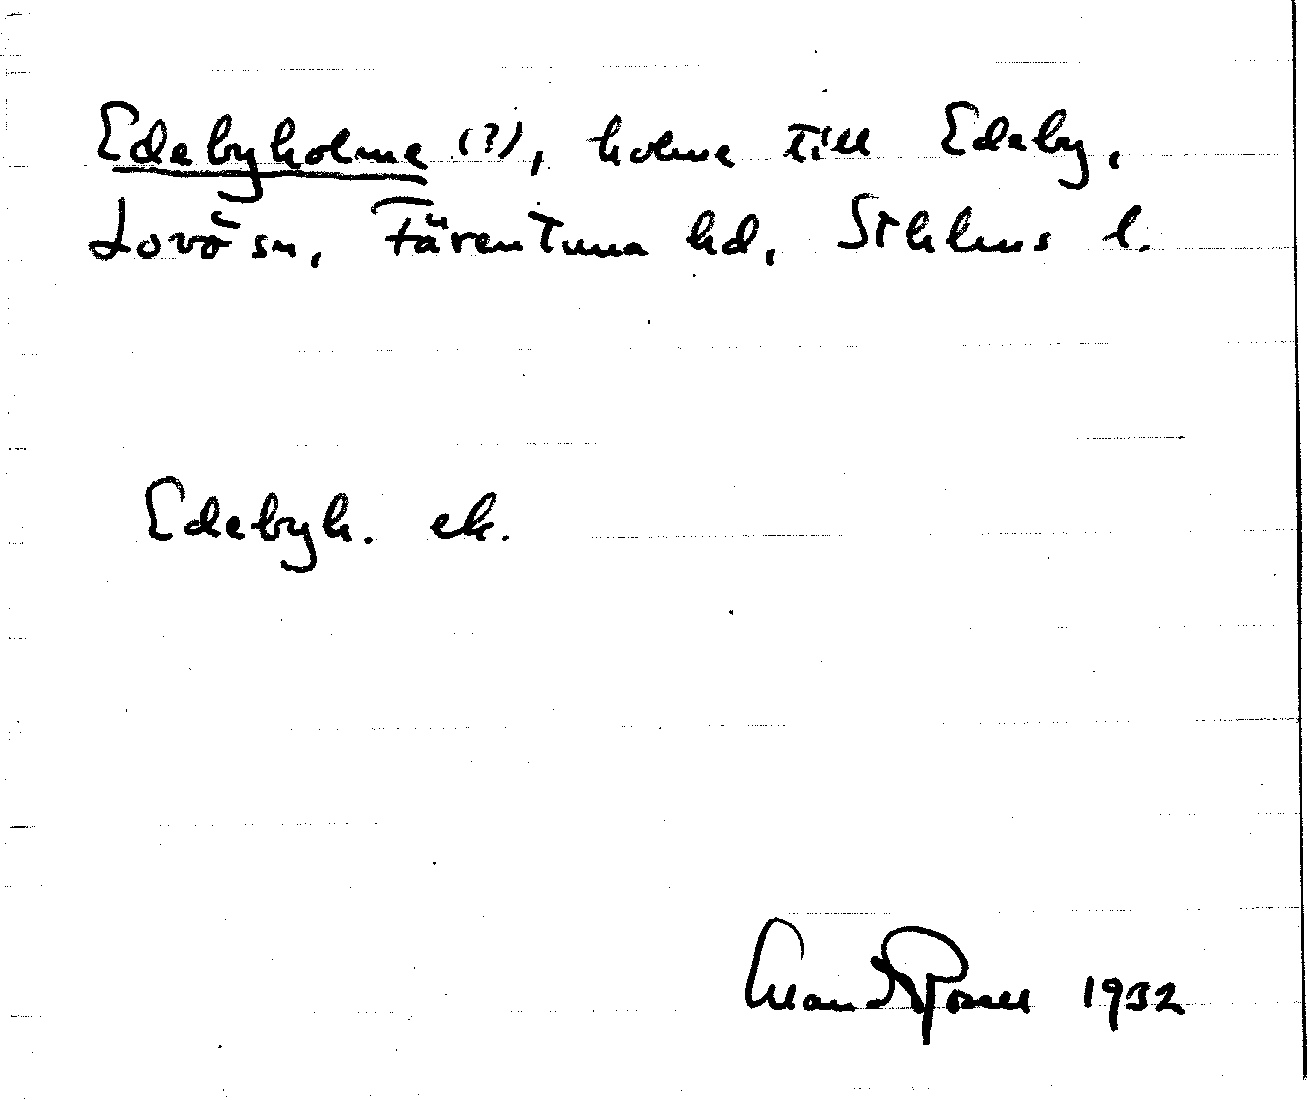 Edebyholme (?), holme till Edeby,
Lovö sn, Färentuna hd, Sthlms l.
Edebyh. ek.
Erland Rosell 1932